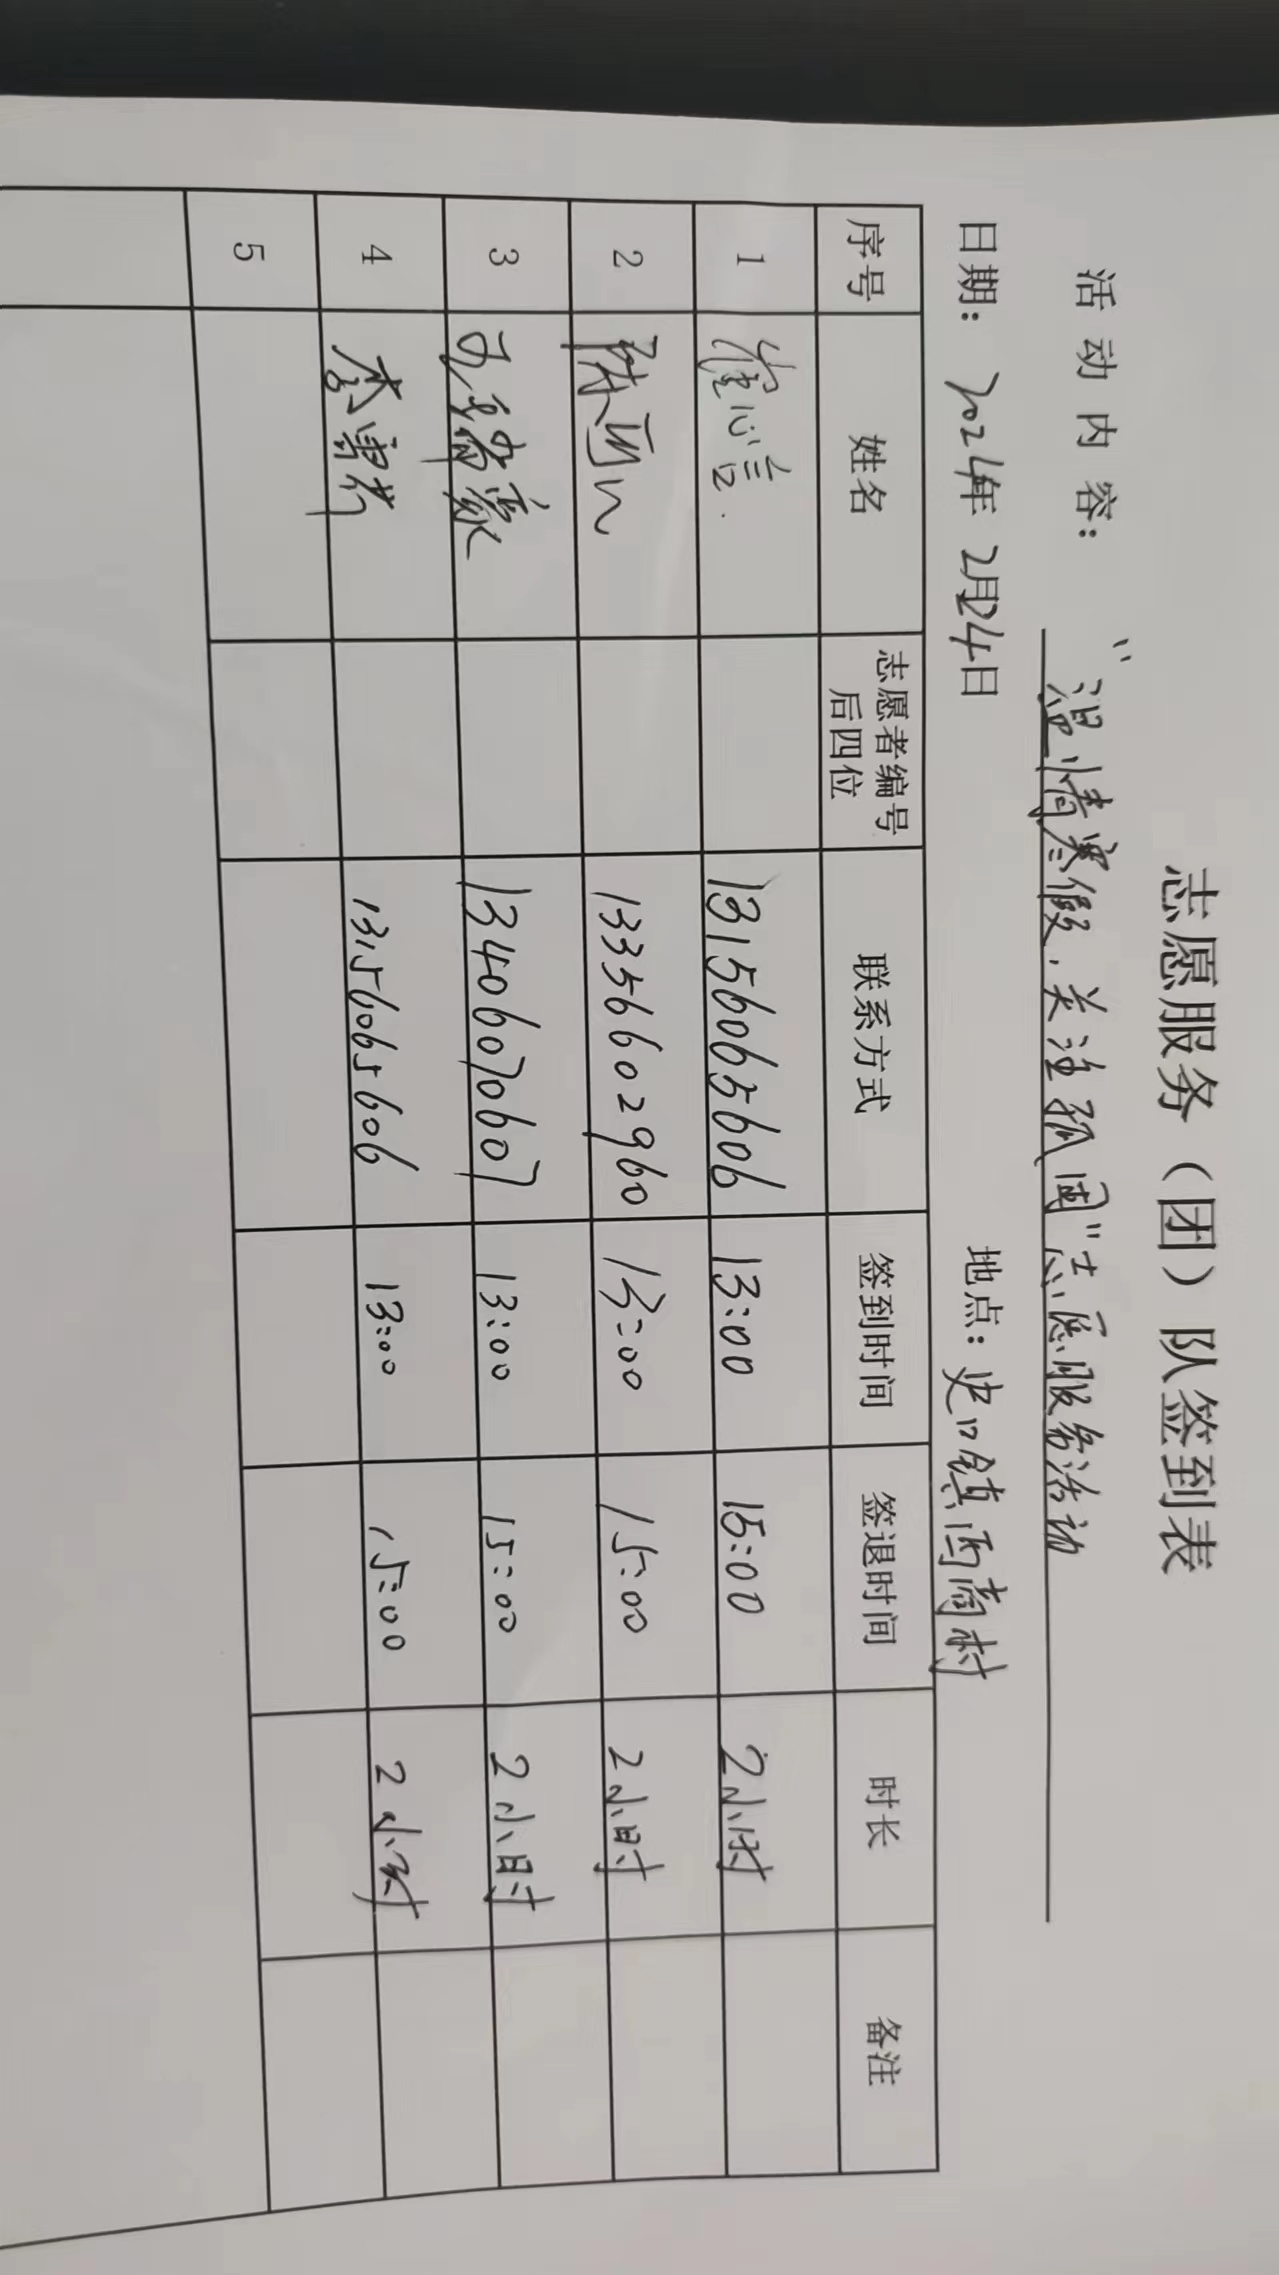 志愿服务（团）队签到表
活动内容： “温情寒假，关注孤困”志愿服务活动
日期： 2024年 2月24日 地点：史口镇西商村
序号 姓名 志愿者编号后四位 联系方式 签到时间 签退时间 时长 备注
1 崔心言. 13156065606 13:00 15:00 2小时
2 陈 13356602960 13:00 15:00 2小时
3 孟锦豪 13406070607 13:00 15:00 2小时
4 李 13156065606 13:00 15:00 2小时
5